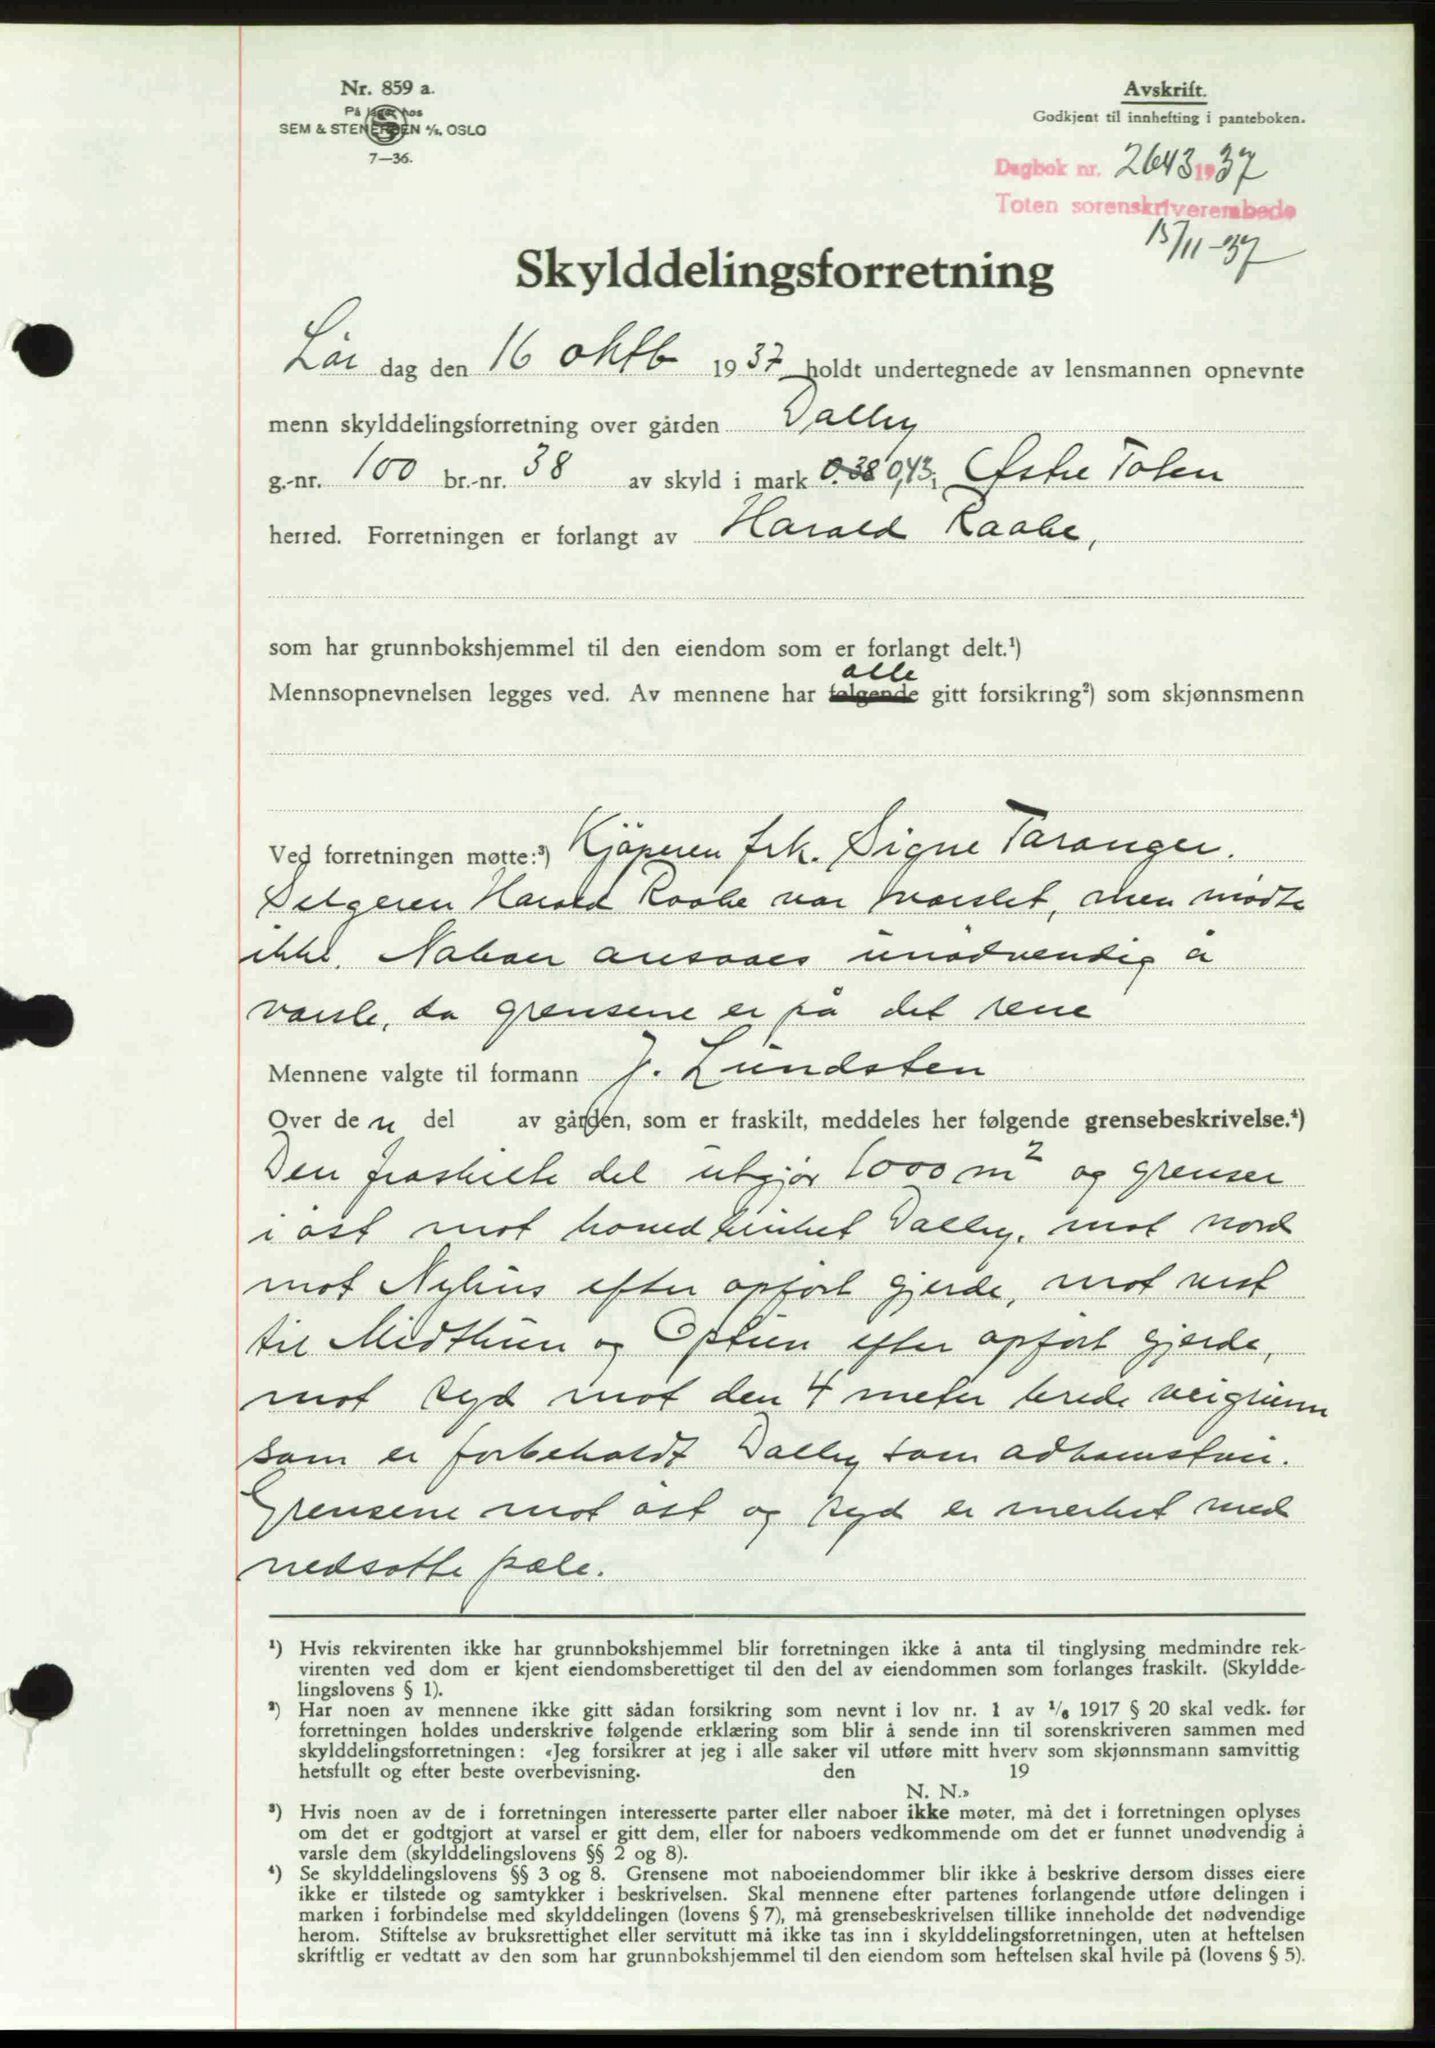 Nr. 859 a.
På lager hos
SEM & STENERSEN A/S, OSLO
7—36.
Avskrift.
Godkjent til innhefting i panteboken.
Dagbok nr. 2643 1937
Toten sorenskriverembede
15/11-37
Skylddelingsforretning
Lør dag den 16 oktb 1937 holdt undertegnede av lensmannen opnevnte
menn skylddelingsforretning over gården Dalby
g.-nr. 100 br.-nr. 38 av skyld i mark 0.38 0,43 i Østre Toten
herred. Forretningen er forlangt av Harald Raabe,
som har grunnbokshjemmel til den eiendom som er forlangt delt.¹)
alle
Mennsopnevnelsen legges ved. Av mennene har følgende gitt forsikring²) som skjønnsmenn
Ved forretningen møtte:³) Kjöperen frk. Signe Taranger.
Selgeren Harald Raabe var varslet, men mødte
ikke. Naboer ansaaes unødvendig å
varsle, da grensene er på det rene
Mennene valgte til formann J. Lundsten
Over den del av gården, som er fraskilt, meddeles her følgende grensebeskrivelse.⁴)
Den fraskilte del utgjør 1000 m² og grenser
i øst mot hovedbruket Dalby, mot nord
mot Nyhus efter opført gjerde, mot vest
til Midthun og efter opført gjerde,
mot syd mot den 4 meter brede veigrunn
som er forbeholdt Dalby som adkomstvei.
Grensene mot øst og syd er merket med
nedsatte pæle.
¹) Hvis rekvirenten ikke har grunnbokshjemmel blir forretningen ikke å anta til tinglysing medmindre rek-
virenten ved dom er kjent eiendomsberettiget til den del av eiendommen som forlanges fraskilt. (Skyldde-
lingslovens § 1).
²) Har noen av mennene ikke gitt sådan forsikring som nevnt i lov nr. 1 av 1/6 1917 § 20 skal vedk. før
forretningen holdes underskrive følgende erklæring som blir å sende inn til sorenskriveren sammen med
skylddelingsforretningen: «Jeg forsikrer at jeg i alle saker vil utføre mitt hverv som skjønnsmann samvittig
hetsfullt og efter beste overbevisning. den 19
N. N.»
³) Hvis noen av de i forretningen interesserte parter eller naboer ikke møter, må det i forretningen oplyses
om det er godtgjort at varsel er gitt dem, eller for naboers vedkommende om det er funnet unødvendig å
varsle dem (skylddelingslovens §§ 2 og 8).
⁴) Se skylddelingslovens §§ 3 og 8. Grensene mot naboeiendommer blir ikke å beskrive dersom disses eiere
ikke er tilstede og samtykker i beskrivelsen. Skal mennene efter partenes forlangende utføre delingen i
marken i forbindelse med skylddelingen (lovens § 7), må grensebeskrivelsen tillike inneholde det nødvendige
herom. Stiftelse av bruksrettighet eller servitutt må ikke tas inn i skylddelingsforretningen, uten at heftelsen
skriftlig er vedtatt av den som har grunnbokshjemmel til den eiendom som heftelsen skal hvile på (lovens § 5).